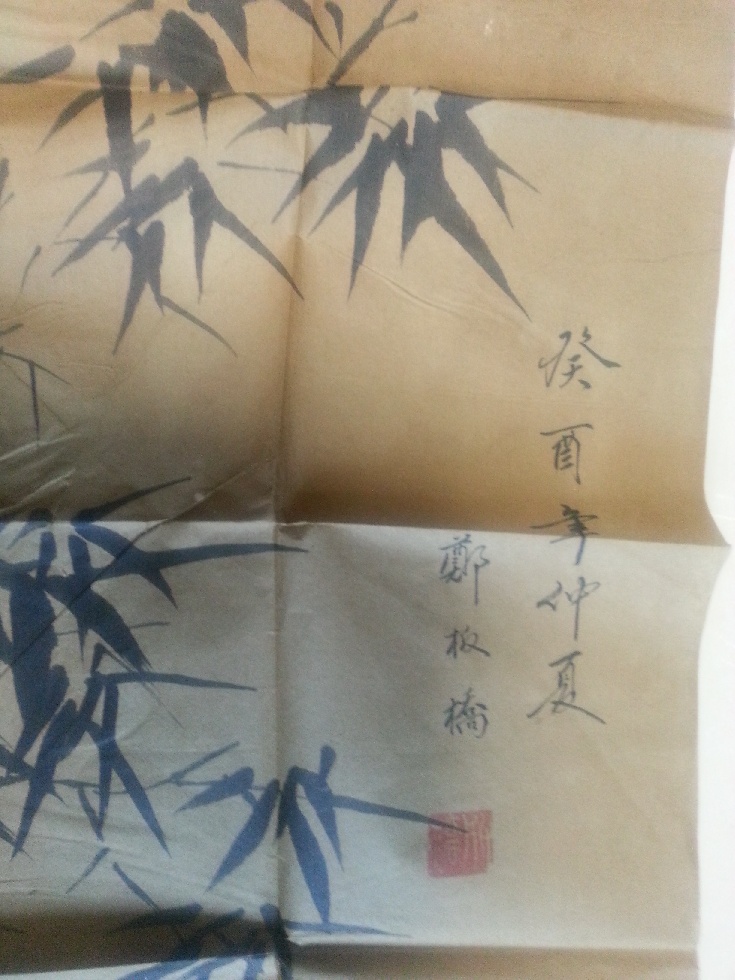 癸酉年仲夏
鄭板橋